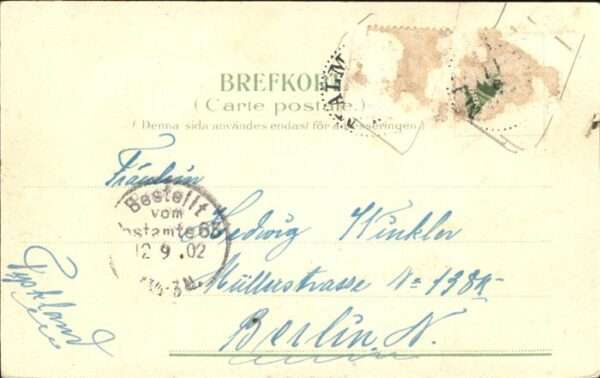 BREFKO
(Carte postale.)
(Denna sida användes endast för adresseringen)
ALM
Fräulein
Bestellt
vom
Postamte 65
12 9 .02
Hedwig Winkler
Müllerstrasse No 138
Tyskland
Berlin. N.